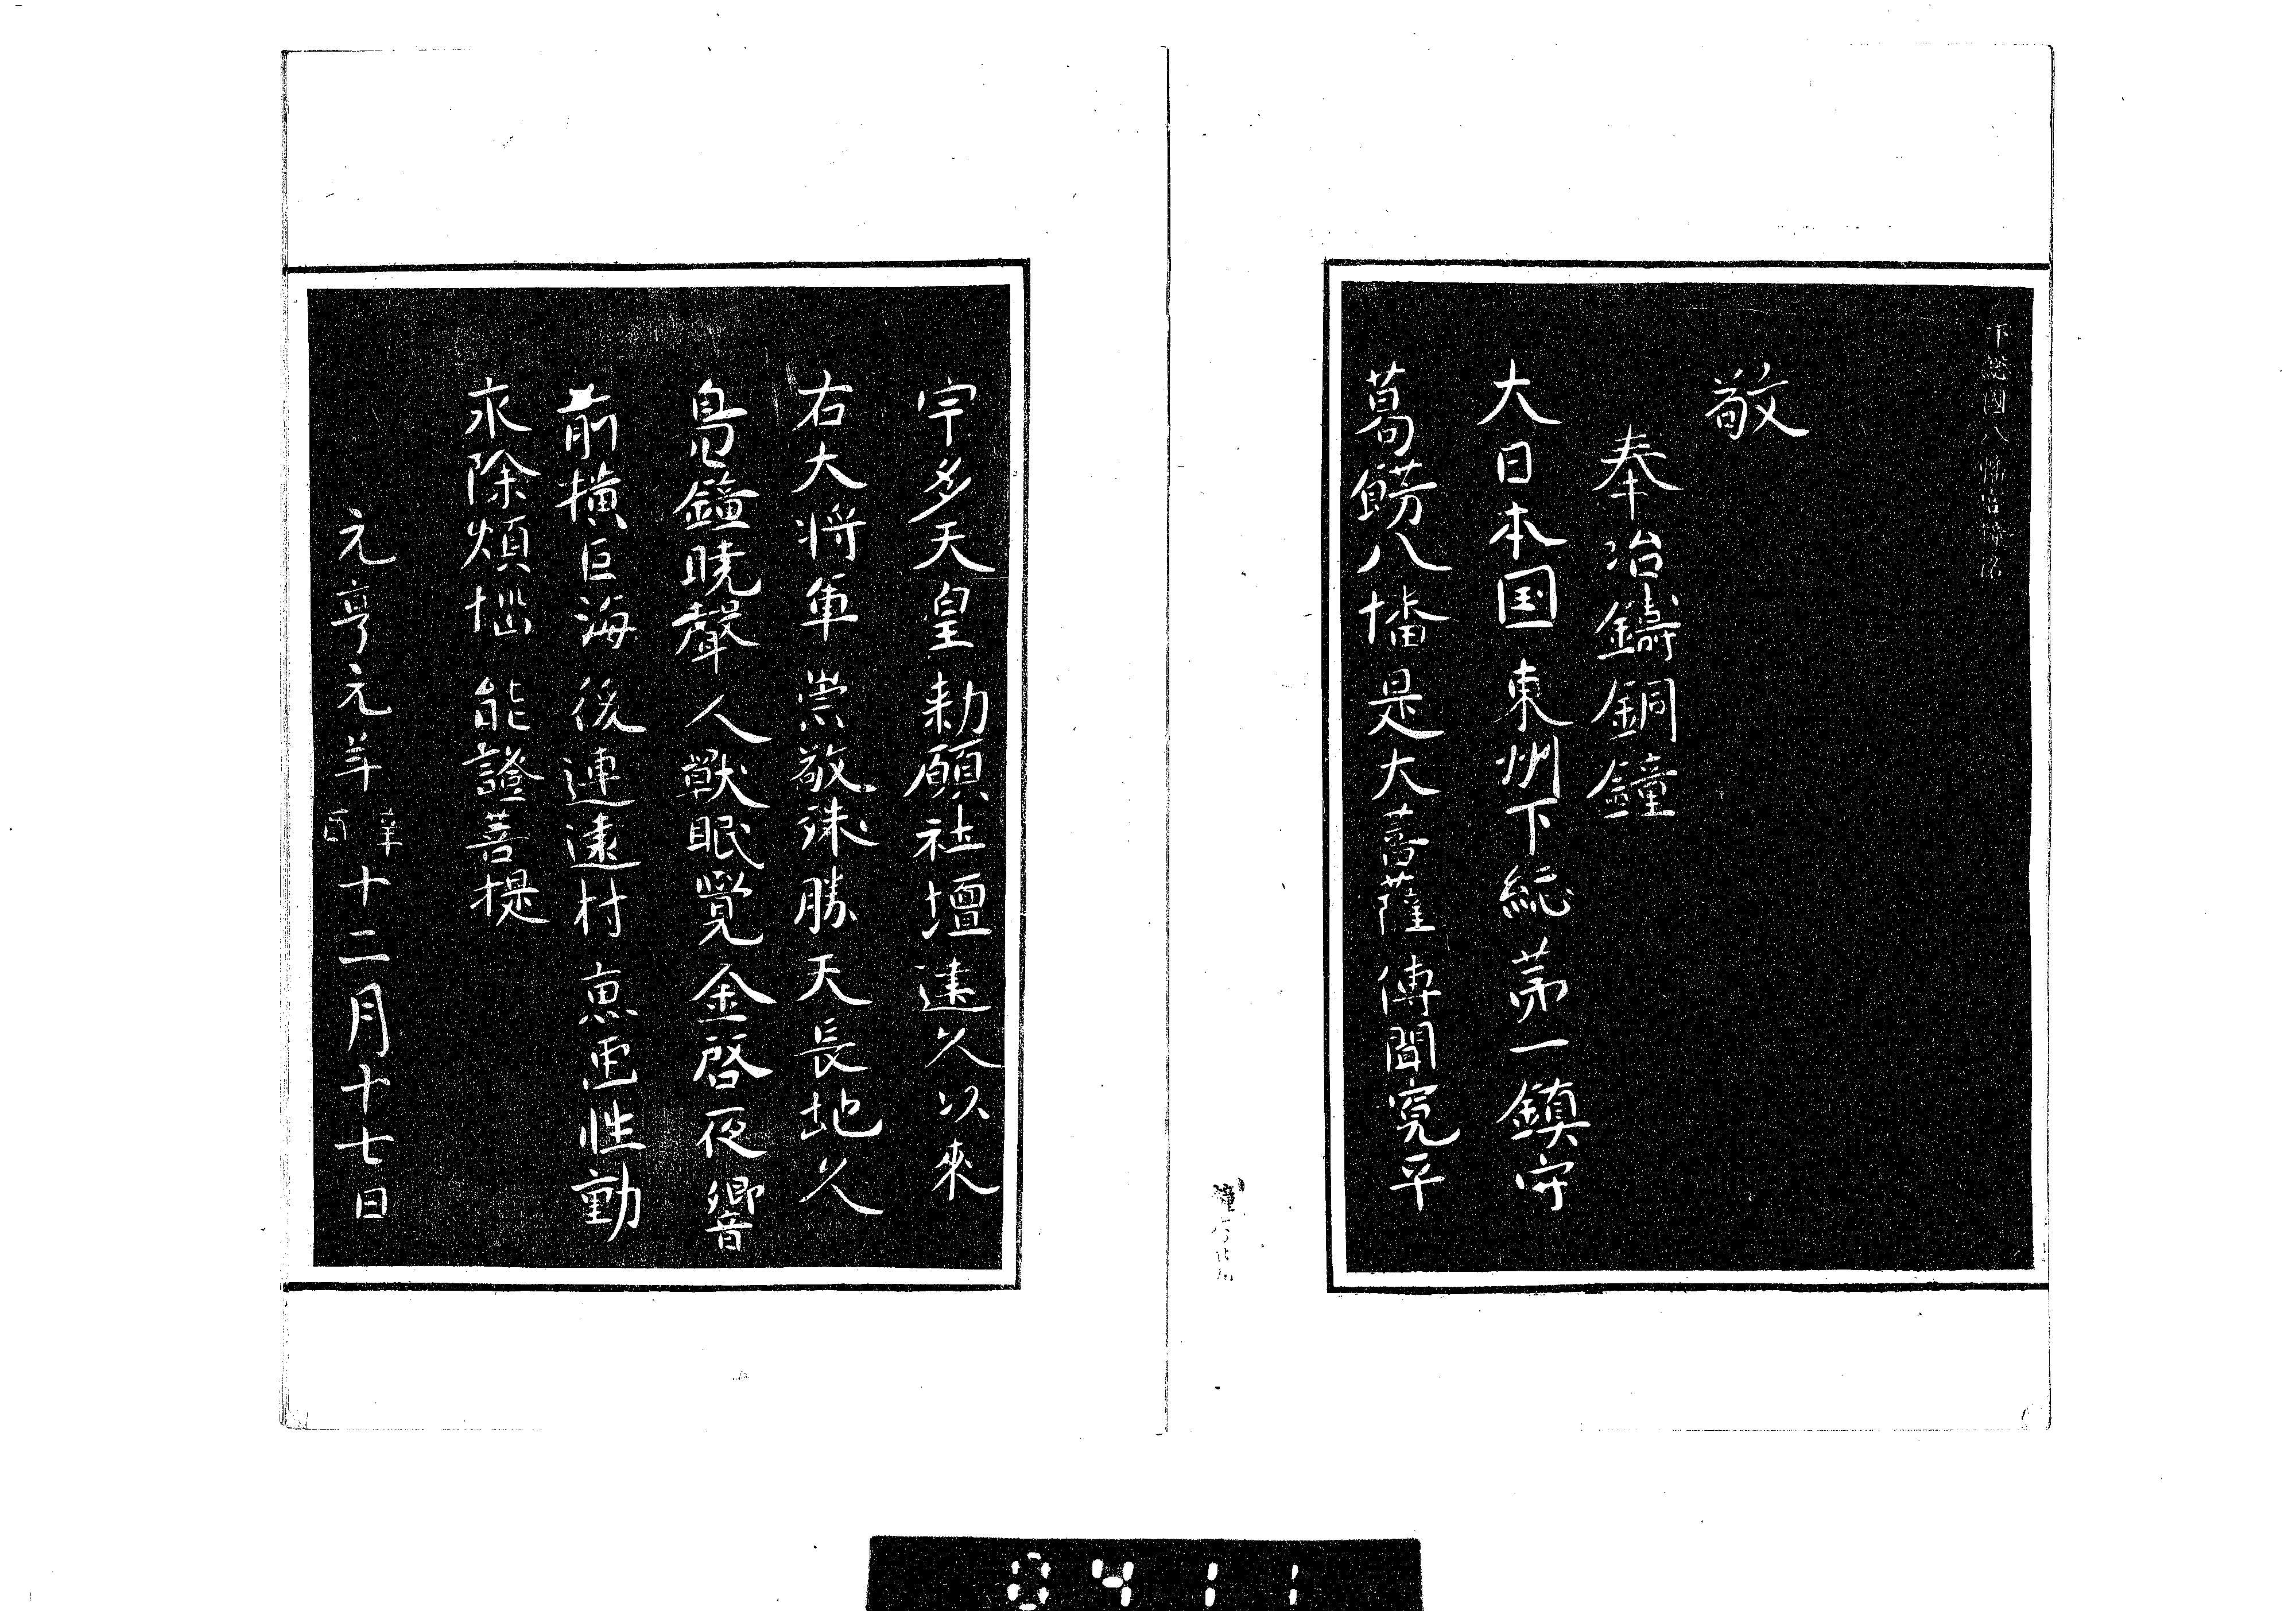 下總國八幡宮鐘銘
敬
奉冶鑄銅鐘
大日本国東州下総第一鎮守
葛餝八幡是大菩薩傳聞寛平
宇多天皇勅願社壇建久以來
右大将軍崇敬殊勝天長地久
鳧鐘暁聲人獣眠覺金啓夜響
前横巨海後連遠村魚虫性動
永除煩悩能證菩提
元亨元年辛酉十二月十七日
0411